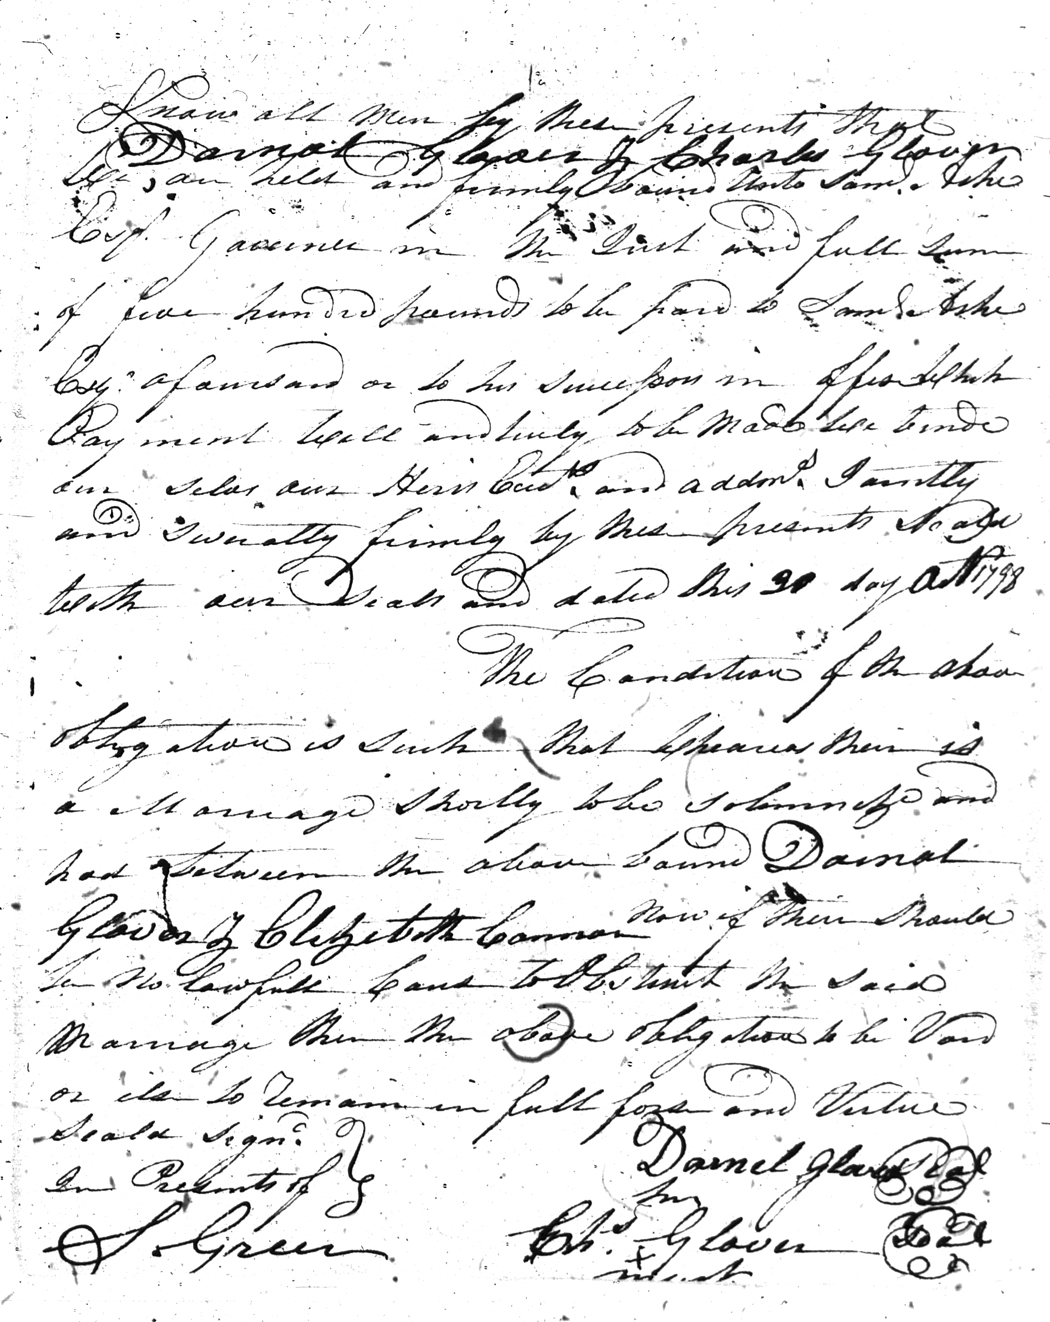 Know all men by these presents that
Darnal Glover & Charles Glover
We, are held and firmly bound unto Saml. Ashe
Esqr. Governer in the Just and full sum
of five hundred pounds to be paid to Saml. Ashe
Esqr. aforesaid or to his successors in office Which
Payment well and truly to be Made We binde
our selvs our Heirs Exds. and addmrs. Jointly
and severally firmly by these presents Seald
with our Seals and dated this 30 day Octr. 1798
The Condition of the above
obligation is such that Wheareas their is
a Marriage Shortly to be solemnize and
had between the above bound Darnal
Glover & Elizebeth Cannon now if their should
be no lawfull Caus to Obstruct the said
marriage then the above obligation to be Void
or else to remain in full forse and Virtue
Seald Signd.
In Presents of
Darnel Glover Seal
S. Green
Chs. Glover Seal
x
mark